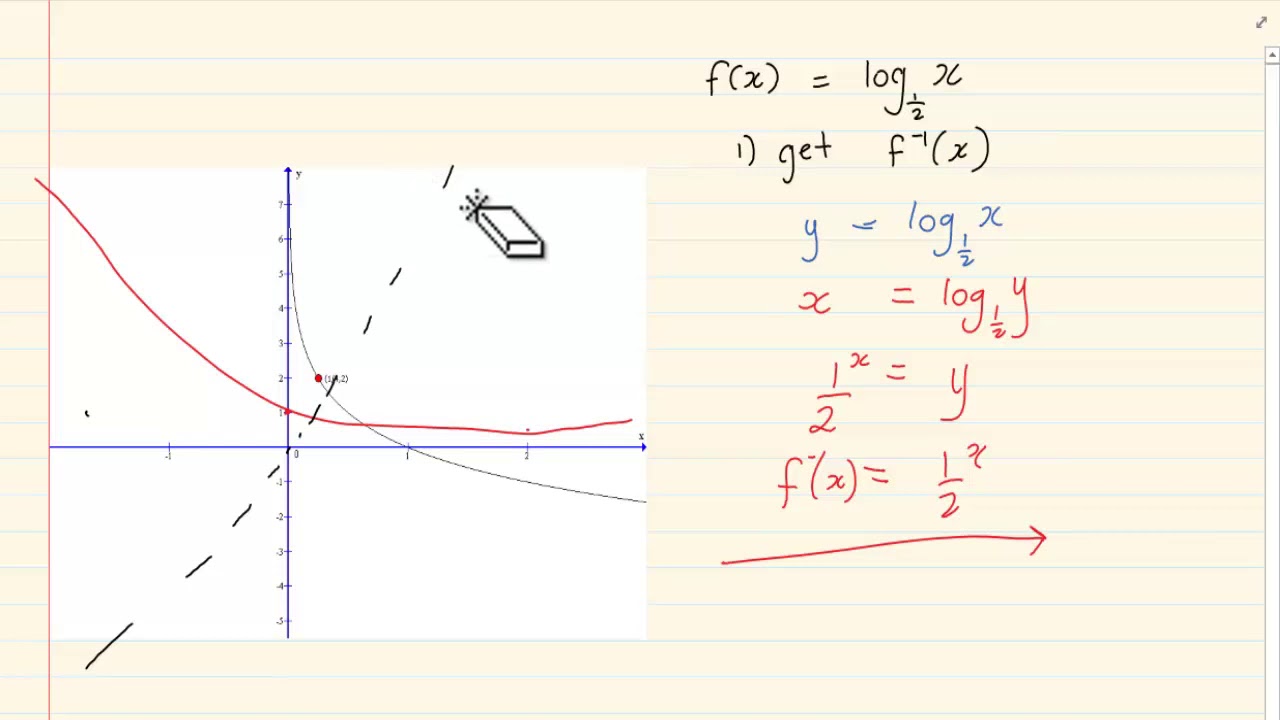 f(x) = log½ x
1) get f⁻¹(x)
y = log½ x
x = log½ y
½ˣ = y
f⁻(x) = ½ˣ
y
7
6
5
4
3
2
1
-1
0
1
2
x
-1
-2
-3
-4
-5